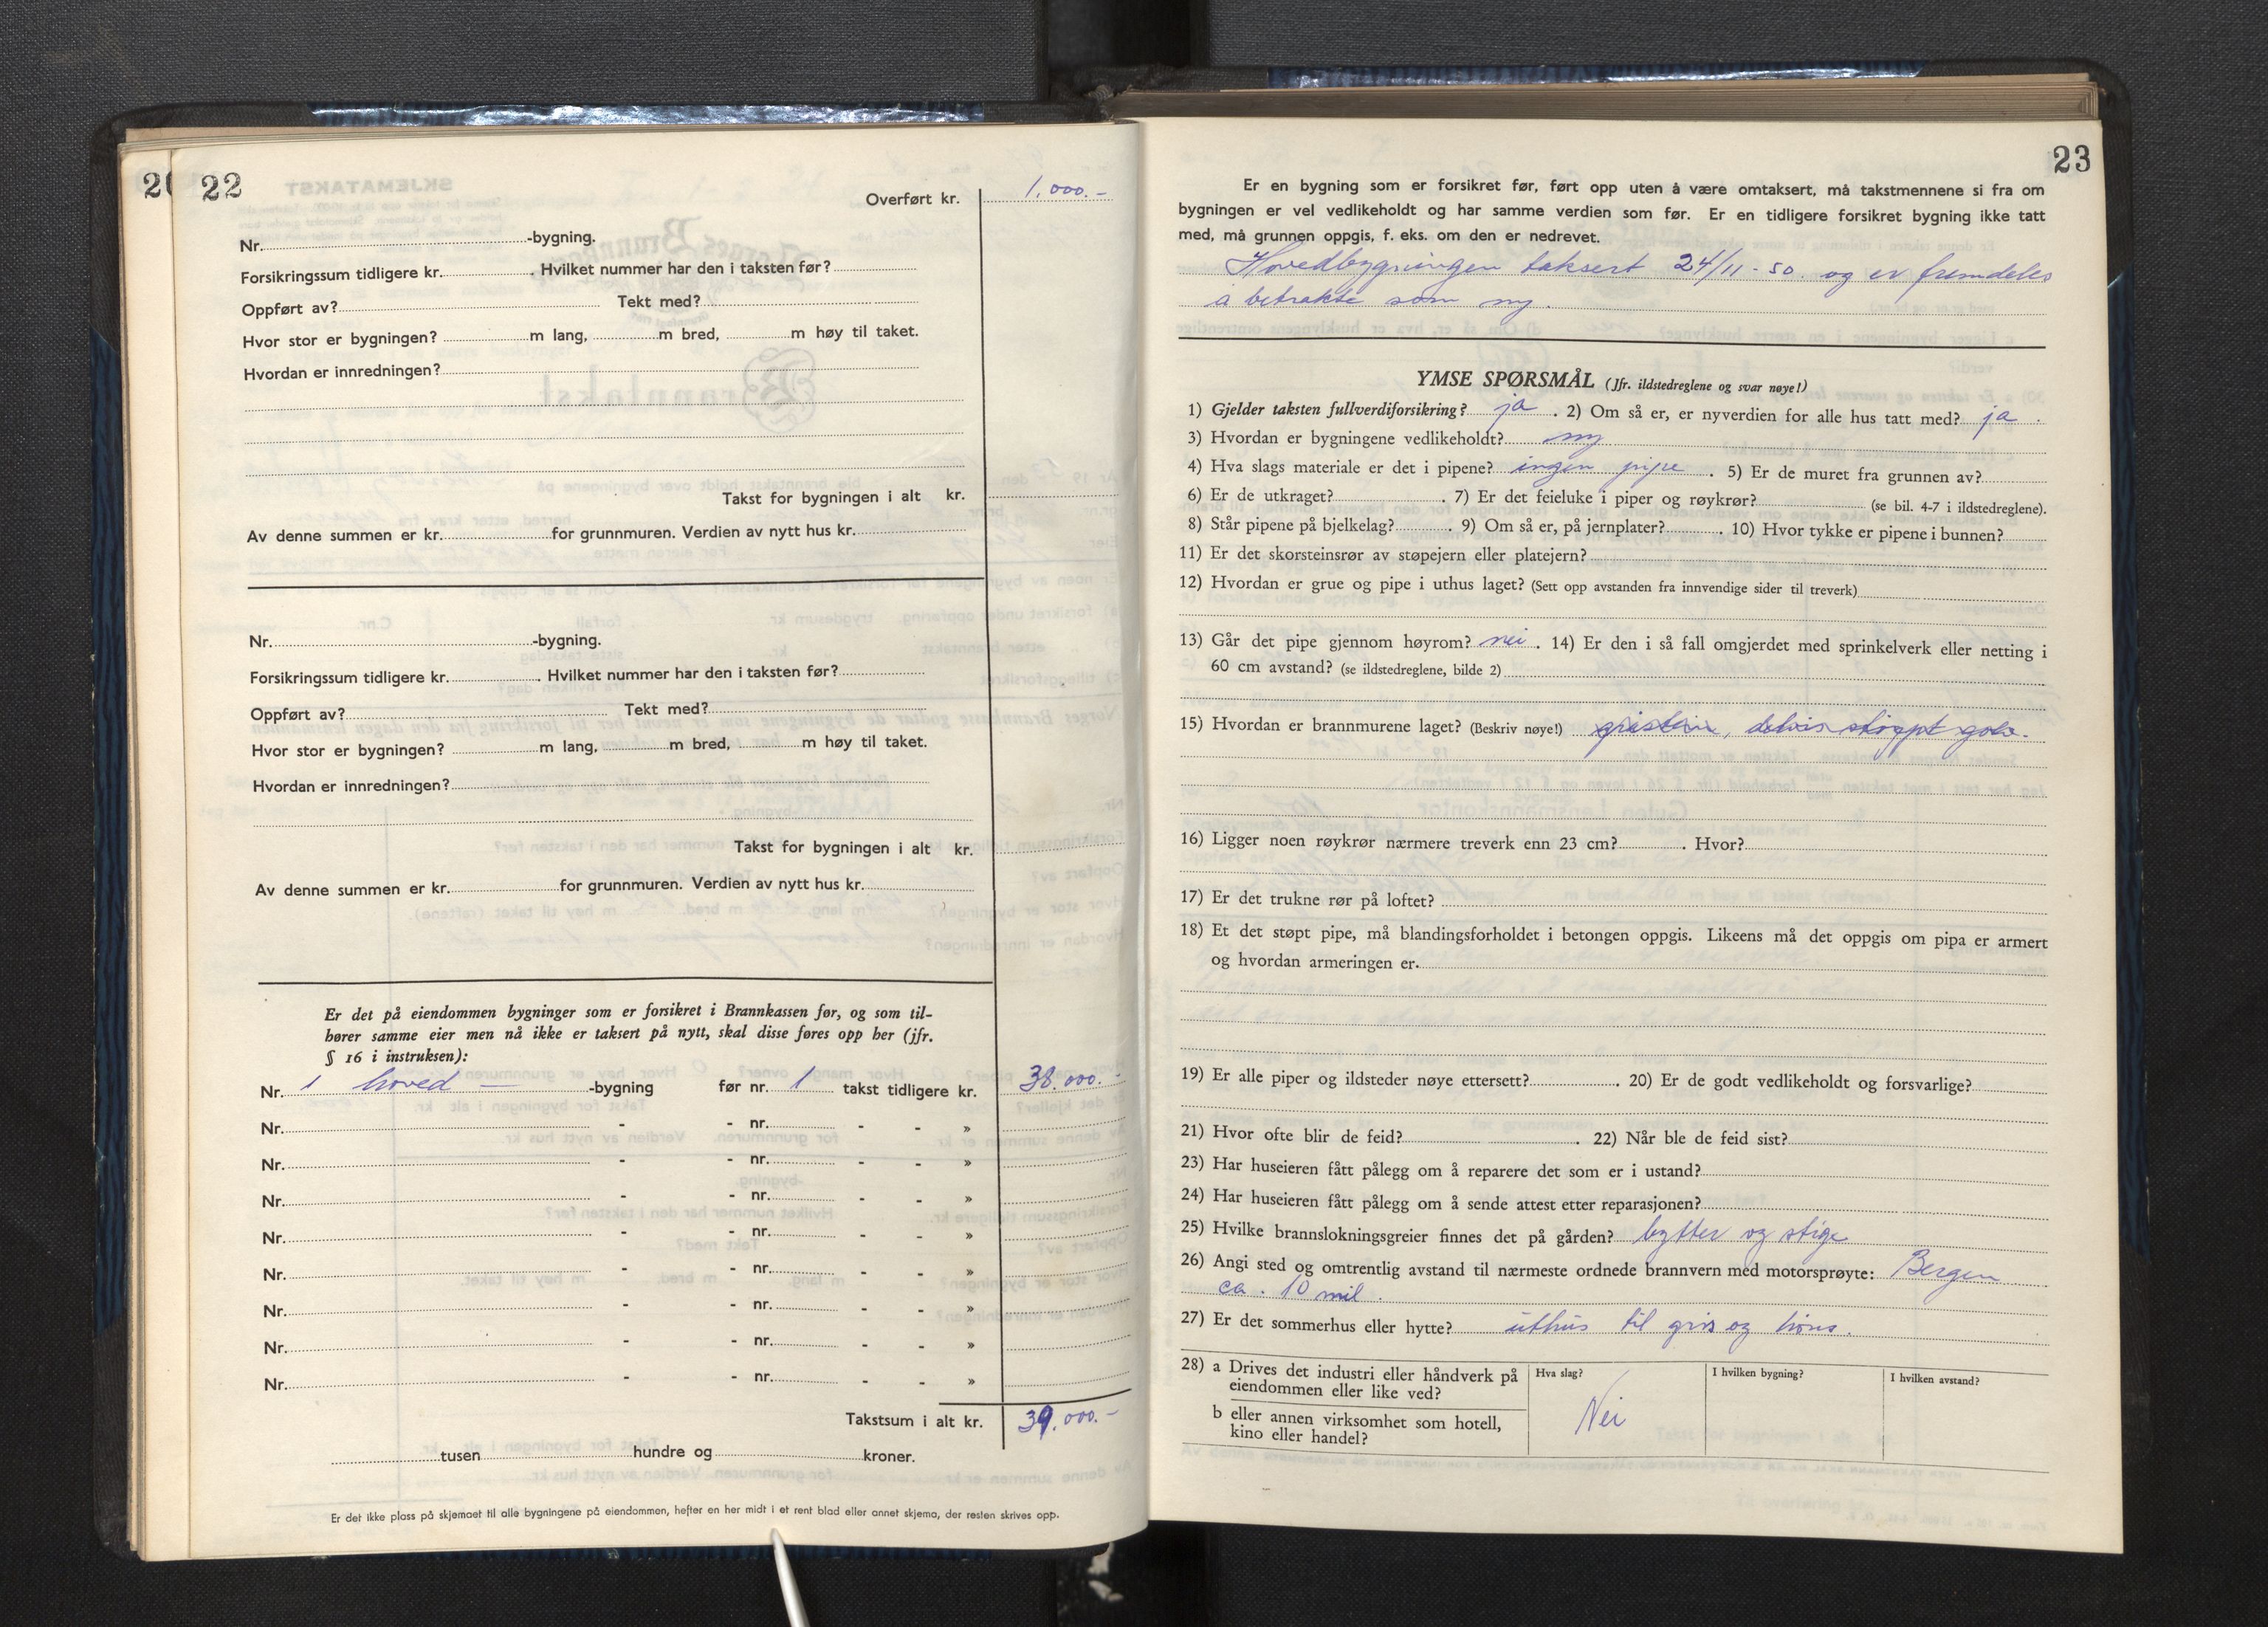 22
Overført kr. 1.000.-
Nr. -bygning.
Forsikringssum tidligere kr. . Hvilket nummer har den i taksten før?
Oppført av? Tekt med?
Hvor stor er bygningen? m lang, m bred, m høy til taket.
Hvordan er innredningen?
Takst for bygningen i alt kr.
Av denne summen er kr. for grunnmuren. Verdien av nytt hus kr.
Nr. -bygning.
Forsikringssum tidligere kr. . Hvilket nummer har den i taksten før?
Oppført av? Tekt med?
Hvor stor er bygningen? m lang, m bred, m høy til taket.
Hvordan er innredningen?
Takst for bygningen i alt kr.
Av denne summen er kr. for grunnmuren. Verdien av nytt hus kr.
Er det på eiendommen bygninger som er forsikret i Brannkassen før, og som til-
hører samme eier men nå ikke er taksert på nytt, skal disse føres opp her (jfr.
§ 16 i instruksen):
Nr. 1 hoved - -bygning før nr. 1 takst tidligere kr. 38.000.-
Nr. - - nr. - - »
Nr. - - nr. - - »
Nr. - - nr. - - »
Nr. - - nr. - - »
Nr. - - nr. - - »
Nr. - - nr. - - »
Nr. - - nr. - - »
Nr. - - nr. - - »
Takstsum i alt kr. 39.000.-
tusen hundre og kroner.
Er det ikke plass på skjemaet til alle bygningene på eiendommen, hefter en her midt i et rent blad eller annet skjema, der resten skrives opp.
23
Er en bygning som er forsikret før, ført opp uten å være omtaksert, må takstmennene si fra om
bygningen er vel vedlikeholdt og har samme verdien som før. Er en tidligere forsikret bygning ikke tatt
med, må grunnen oppgis, f. eks. om den er nedrevet.
Hovedbygningen taksert 24/11-50. og er fremdeles
å betrakte som ny.
YMSE SPØRSMÅL (Jfr. ildstedreglene og svar nøye!)
1) Gjelder taksten fullverdiforsikring? ja . 2) Om så er, er nyverdien for alle hus tatt med? ja .
3) Hvordan er bygningene vedlikeholdt? ny
4) Hva slags materiale er det i pipene? ingen pipe . 5) Er de muret fra grunnen av?
6) Er de utkraget? . 7) Er det feieluke i piper og røykrør? (se bil. 4-7 i ildstedreglene).
8) Står pipene på bjelkelag? . 9) Om så er, på jernplater? . 10) Hvor tykke er pipene i bunnen?
11) Er det skorsteinsrør av støpejern eller platejern?
12) Hvordan er grue og pipe i uthus laget? (Sett opp avstanden fra innvendige sider til treverk)
13) Går det pipe gjennom høyrom? nei . 14) Er den i så fall omgjerdet med sprinkelverk eller netting i
60 cm avstand? (se ildstedreglene, bilde 2)
15) Hvordan er brannmurene laget? (Beskriv nøye!) støypt golv.
16) Ligger noen røykrør nærmere treverk enn 23 cm? . Hvor?
17) Er det trukne rør på loftet?
18) Et det støpt pipe, må blandingsforholdet i betongen oppgis. Likeens må det oppgis om pipa er armert
og hvordan armeringen er.
19) Er alle piper og ildsteder nøye ettersett? . 20) Er de godt vedlikeholdt og forsvarlige?
21) Hvor ofte blir de feid? . 22) Når ble de feid sist?
23) Har huseieren fått pålegg om å reparere det som er i ustand?
24) Har huseieren fått pålegg om å sende attest etter reparasjonen?
25) Hvilke brannslokningsgreier finnes det på gården? bytter og stige
26) Angi sted og omtrentlig avstand til nærmeste ordnede brannvern med motorsprøyte: Bergen
ca. 10 mil.
27) Er det sommerhus eller hytte? uthus til gris og høns.
28) a Drives det industri eller håndverk på
eiendommen eller like ved?
b eller annen virksomhet som hotell,
kino eller handel?
Hva slag?
Nei
I hvilken bygning?
I hvilken avstand?